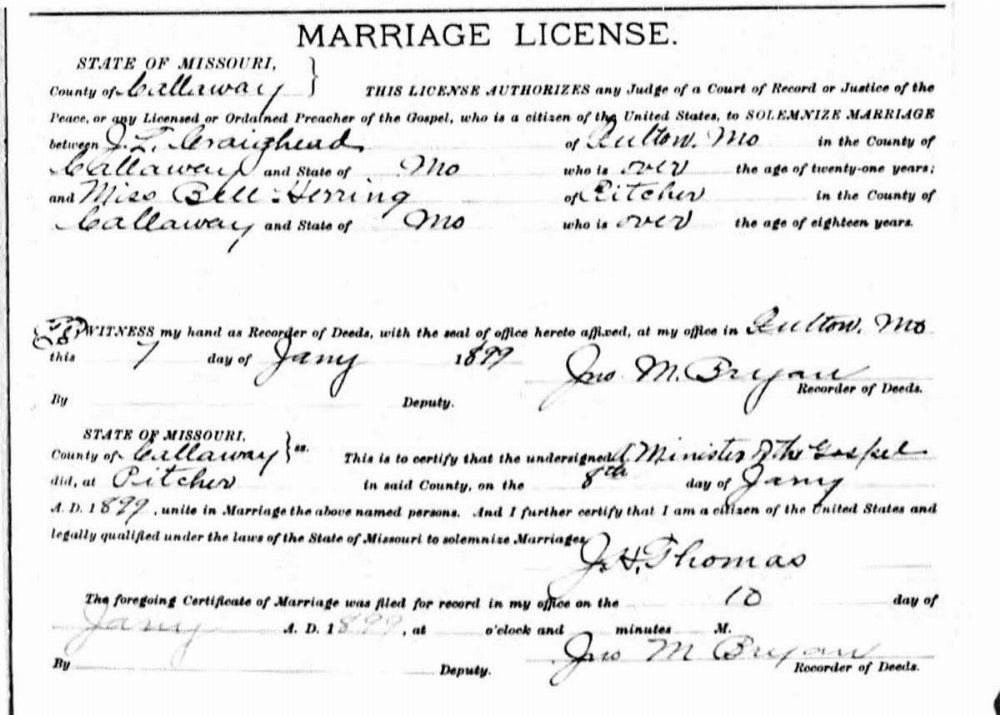 MARRIAGE LICENSE.
STATE OF MISSOURI,
County of Callaway } THIS LICENSE AUTHORIZES any Judge of a Court of Record or Justice of the
Peace, or any Licensed or Ordained Preacher of the Gospel, who is a citizen of the United States, to SOLEMNIZE MARRIAGE
between J. T. Craighead of Fulton, Mo in the County of
Callaway and State of Mo who is over the age of twenty-one years;
and Miss Bell Herring of Pitcher in the County of
Callaway and State of Mo who is over the age of eighteen years.
WITNESS my hand as Recorder of Deeds, with the seal of office hereto affixed, at my office in Fulton, Mo
this 7 day of Jany 1899 Jno M. Bryan
Recorder of Deeds.
By Deputy.
STATE OF MISSOURI,
County of Callaway } ss. This is to certify that the undersigned A Minister of the Gospel
did, at Pitcher in said County, on the 8th day of Jany
A. D. 1899, unite in Marriage the above named persons. And I further certify that I am a citizen of the United States and
legally qualified under the laws of the State of Missouri to solemnize Marriages
J. H. Thomas
The foregoing Certificate of Marriage was filed for record in my office on the 10 day of
Jany A. D. 1899, at o'clock and minutes M.
Jno M Bryan
By Deputy. Recorder of Deeds.